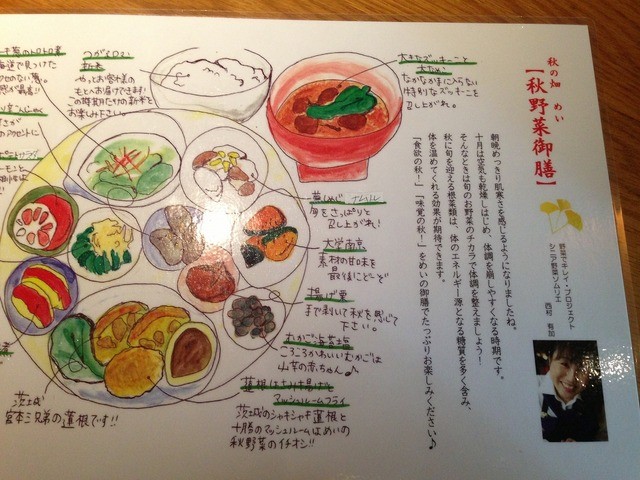 秋の畑 めい
【秋野菜御膳】
野菜でキレイ・プロジェクト
シニア野菜ソムリエ
西村 有加
朝晩めっきり肌寒さを感じるようになりましたね。
十月は空気も乾燥しはじめ、体調を崩しやすくなる時期です。
そんなときは旬のお野菜のチカラで体調を整えましょう！
秋に旬を迎える根菜類は、体のエネルギー源となる糖質を多く含み、
体を温めてくれる効果が期待できます。
「食欲の秋！」「味覚の秋！」をめいの御膳でたっぷりお楽しみください♪
大きなズッキーニと
なかなか手に入らない
特別なズッキーニを
召し上がれ。
つがるロマン
新米
やっとお客様の
もとへお届けできます!
この時期だけの新米を
お楽しみ下さい。
ナムル
旬をさっぱりと
召し上がれ!
大学南京
素材の甘味を
最後にどーぞ
揚げ栗
まで剥いて秋を感じて
下さい。
むかご
ころころかわいいむかごは
山芋の赤ちゃん♪
蓮根はさみ揚げと
マッシュルームフライ
茨城のシャキシャキ蓮根と
十勝のマッシュルームはめいの
秋野菜のイチオシ!!
茨城
宮本三兄弟の蓮根です!!